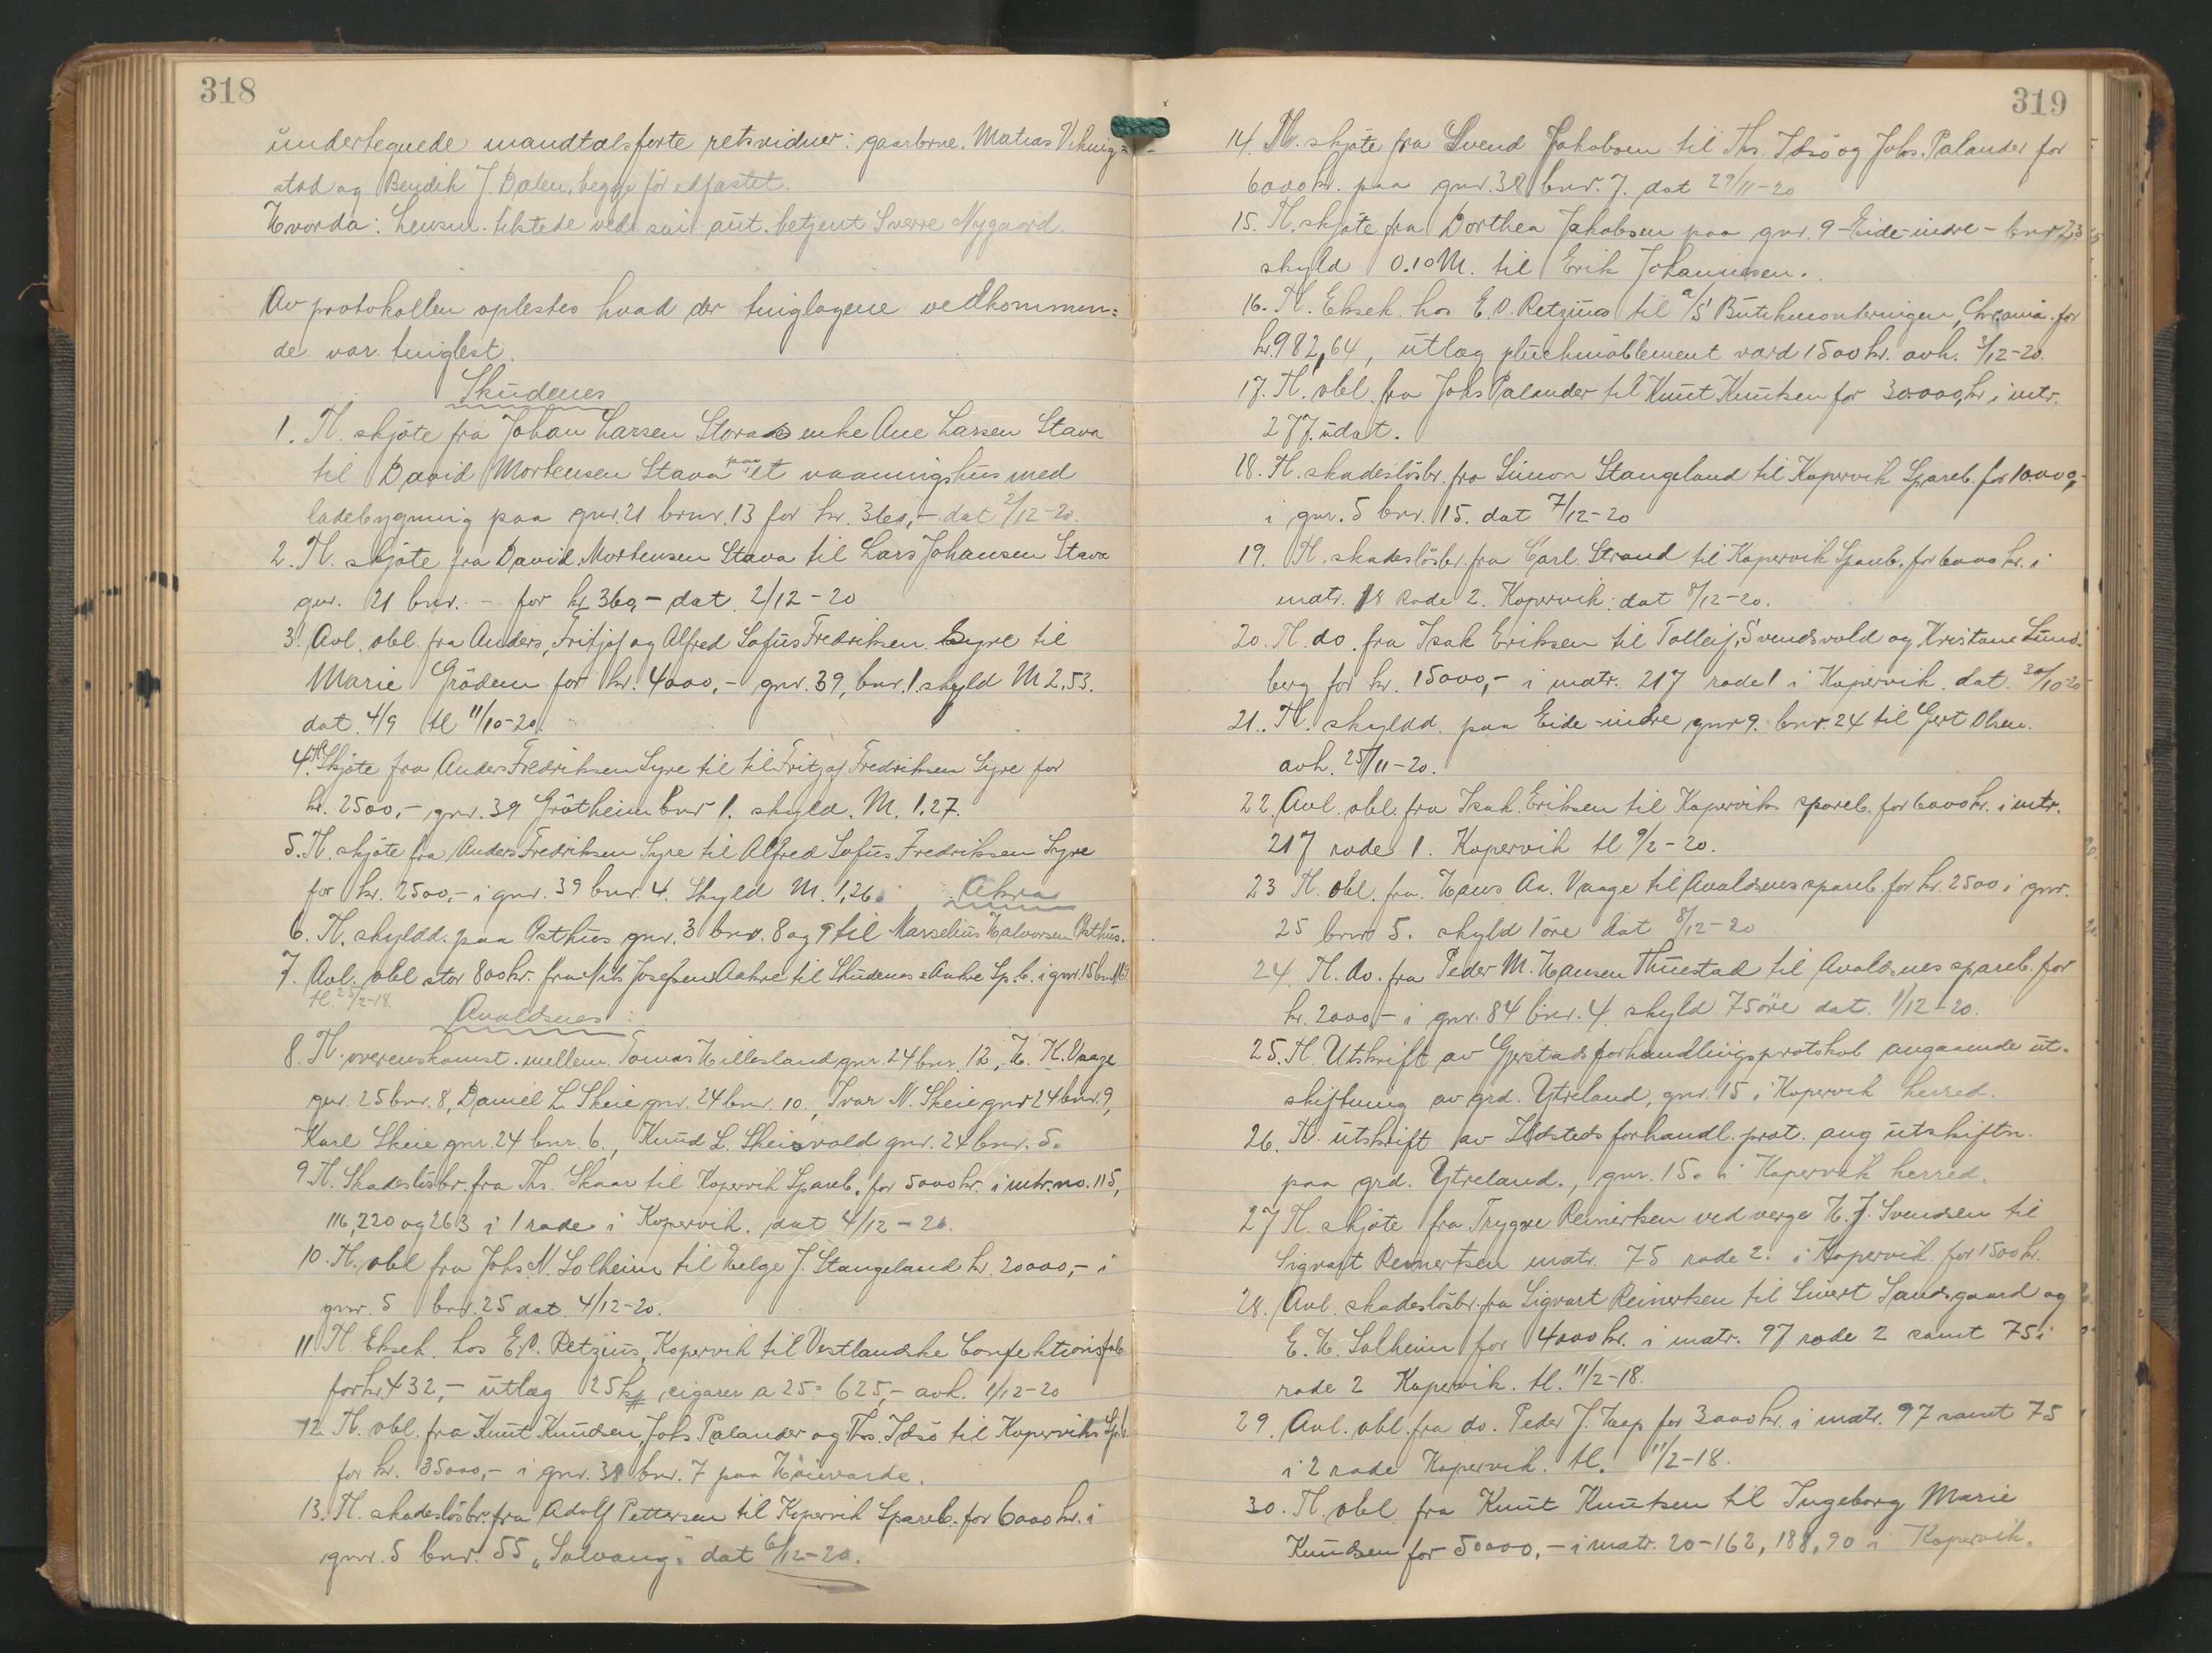 318
undertegnede mandtalsførte retsvidner: gaarbrue. Matias Viknig=
stad og Bendik J. Dalen, begge før edfæstet.
Hvorda: Lensm. tilstede ved sin aut. betjent Sverre Nygaard.
Av protokollen oplestes hvad der tinglagene vedkommen=
de var tinglest.
Skudenes
1. Tl. skjøte fra Johan Larsen Stavas enke Ane Larsen Stava
til David Mortensen Stava paa et vaaningshus med
ladebygning paa gnr. 21 brnr. 13 for kr. 360,- dat 2/12-20.
2. Tl. skjøte fra David Mortensen Stava til Lars Johansen Stava
gnr. 21 bnr. - for kr 360,- dat. 2/12-20
3. Avl. obl. fra Anders, Fritjof og Alfred Sofus Fredriksen Syre til
Marie Grödem for kr. 4000,- gnr. 39, bnr. 1. skyld M 2,53.
dat. 4/9 tl 11/10-20.
4. Tl. Skjøte fra Anders Fredriksen Syre til til Fritjof Fredriksen Syre for
kr. 2500,- gnr. 39 Grötheim bnr 1. skyld. M. 1.27.
5. Tl. skjøte fra Anders Fredriksen Syre til Alfred Sofus Fredriksen Syre
for kr. 2500,- i gnr. 39 bnr. 4. Skyld M. 1,26. Akra
6. Tl. skyldd. paa Østhus gnr. 3 bnr. 8 og 9 til Marselius Halvorsen Østhus.
7. Avl. obl stor 800 kr. fra Nils Josefsen Aakre til Skudenes & Aakre Sp.b. i gnr. 15 bnr. 167
tl. 25/2-18.
Avaldsnes:
8. Tl. overenskomst mellem Tomas Hillesland gnr. 24 bnr. 12, H. H. Vaage
gnr. 25 bnr. 8, Daniel L. Skeie gnr. 24 bnr. 10, Ivar N. Skeie gnr 24 bnr. 9,
Karl Skeie gnr. 24 bnr. 6., Knud L. Skeisvold gnr. 24 bnr. 5.
9 Tl. Skadesløsbr. fra Ths. Skaar til Kopervik Spareb. for 5000 kr. i mtr. no. 115,
116, 220 og 263 i 1 rode i Kopervik. dat 4/12-20.
10. Tl. obl fra Johs N. Solheim til Helge J. Stangeland kr. 20000,- i
gnr. 5 bnr. 25 dat. 4/12-20.
11 Tl. Eksek. hos E. O. Retzius, Kopervik til Vestlandske Confektionsfab
for kr. 432,- utlæg 25 ks cigarer a 25= 625,- avh. 1/12-20
12. Tl. obl. fra Knut Knudsen, Johs Palander og Ths. Idsö til Koperviks Spb.
for kr. 35000,- i gnr. 38 bnr. 7 paa Höievarde.
13. Tl. skadesløsbr. fra Adolf Pettersen til Kopervik Spareb. for 6000 kr. i
gnr. 5 bnr. 55 „Solvang" dat 6/12-20.
319
14. Tl. skjøte fra Svend Jakobsen til Ths. Idsö og Johs. Palander for
6000 kr. paa gnr. 38 bnr. 7. dat 29/11-20
15. Tl. skjøte fra Dorthea Jakobsen paa gnr. 9 - Eide-indre - bnr 23
skyld 0.10 M. til Erik Johannesen.
16. Tl. Eksek. hos E. O. Retzius til A/S Butikmonteringen, Chrania. for
kr. 982,64, utlæg pluchmøblement værd 1500 kr. avh. 3/12-20.
17. Tl. obl. fra Johs Palander til Knut Knutsen for 30.000 kr i mtr.
277. udat.
18. Tl. skadeslösbr. fra Simon Stangeland til Kopervik Spareb. for 10.000,-
i gnr. 5 bnr. 15. dat 7/12-20
19. Tl. skadeslösbr. fra Carl Strand til Kopervik Spareb. for 6000 kr. i
matr. 18 Rode 2. Kopervik. dat 8/12-20.
20. Tl. do. fra Isak Eriksen til Tolleif Svendsvold og Kristane Lund=
berg for kr. 15000,- i matr. 217 rode 1 i Kopervik. dat. 30/10-20
21. Tl. skyldd. paa Eide-indre gnr 9. bnr. 24 til Gert Olsen.
avh. 25/11-20.
22. Avl. obl. fra Isak Eriksen til Koperviks spareb. for 6000 kr. i mtr.
217 rode 1. Kopervik tl 9/2-20.
23 Tl. obl. fra Hans Aa. Vaage til Avaldsnes spareb. for kr. 2500 i gnr.
25 bnr 5. skyld 1 öre dat 8/12-20
24. Tl. do. fra Peder M. Hansen Thuestad til Avaldsnes spareb. for
kr. 2000,- i gnr. 84 bnr. 4. skyld 75 öre dat. 1/12-20.
25. Tl. Utskrift av Gjerstads forhandlingsprotokol angaaende ut-
skiftning av grd. Ytreland, gnr. 15 i Kopervik herred.
26. Tl. utskrift av Idsteds forhandl. prot. ang utskiftn.
paa grd. Ytreland., gnr. 15. i Kopervik herred.
27 Tl. skjøte fra Trygve Reinertsen ved verge H. J. Svendsen til
Sigvart Reinertsen matr. 75 rode 2. i Kopervik for 1500 kr.
28. Avl. skadeslösbr. fra Sigvart Reinertsen til Sivert Sandsgaard og
E. H. Solheim for 4000 kr. i matr. 97 rode 2 samt 75 i
rode 2 Kopervik. tl. 11/2-18.
29. Avl. obl. fra do. Peder J. Hop for 3000 kr. i matr. 97 samt 75
i 2 rode Kopervik. tl. 11/2-18.
30. Tl. obl fra Knut Knutsen til Ingeborg Marie
Knudsen for 50000,- i matr. 20-162, 188, 90 i Kopervik.